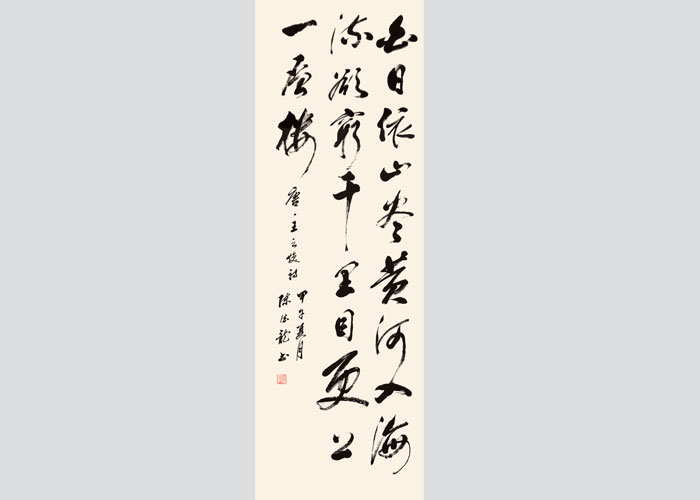 白日依山尽黄河入海
流欲穷千里目更上
一层楼
唐·王之涣诗
甲午夏月
陈龙书